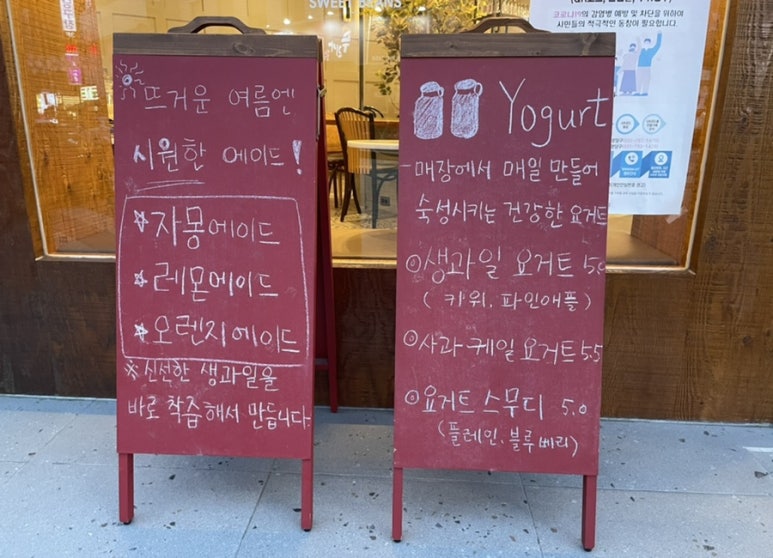 SWEET BEANS
뜨거운 여름엔
시원한 에이드!
☆자몽에이드
☆레몬에이드
☆오렌지에이드
※신선한 생과일을
바로 착즙해서 만듭니다.
Yogurt
-매장에서 매일 만들어
숙성시키는 건강한 요거트
◎생과일 요거트 5.0
(키위, 파인애플)
◎사과케일 요거트 5.5
◎요거트 스무디 5.0
(플레인, 블루베리)
코로나19의 감염병 예방 및 차단을 위하여
시민들의 적극적인 동참이 필요합니다.